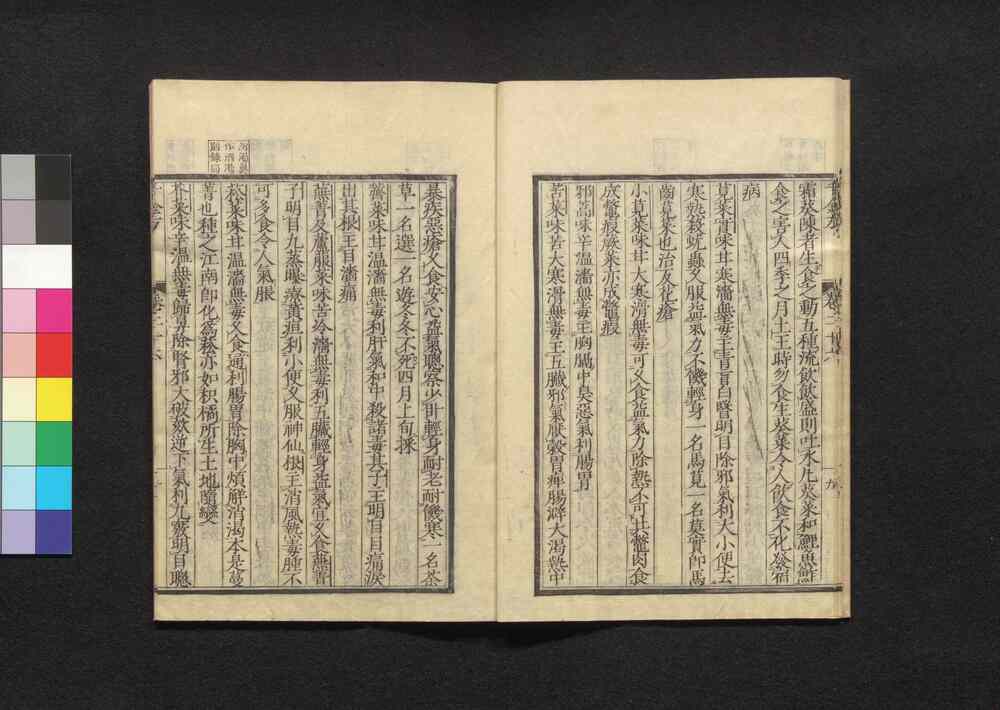 霜葵陳者生食之動五種流飲飲盛則吐水凡葵菜和鯉魚鮓
食之害人四季之月土王時勿食生葵菜令人飲食不化發宿
病
莧菜實味甘寒濇無毒主青盲白瞖明目除邪氣利大小便去
寒熱殺蚘蟲久服益氣力不饑輕身一名馬莧一名莫實即馬
齒莧菜也治反花瘡
小莧菜味甘大寒滑無毒可久食益氣力除熱不可共鼈肉食
成鼈瘕蕨菜亦成鼈瘕
邪蒿味辛溫濇無毒主胸膈中臭惡氣利腸胃
苦菜味苦大寒滑無毒主五臟邪氣厭穀胃痺腸澼大渴熱中
暴疾惡瘡久食安心益氣聰察少卧輕身耐老耐饑寒一名荼
草一名選一名遊冬冬不死四月上旬採
薺菜味甘溫濇無毒利肝氣和中殺諸毒其子主明目目痛淚
出其根主目濇痛
蕪菁及蘆菔菜味苦冷濇無毒利五臟輕身益氣宜久食蕪菁
子明目九蒸曝療黃疸利小便久服神仙根主消風熱毒腫不
可多食令人氣脹
菘菜味甘溫濇無毒久食通利腸胃除胸中煩解消渴本是蔓
菁也種之江南即化爲菘亦如枳橘所生土地隨變
芥菜味辛溫無毒歸鼻除腎邪大破欬逆下氣利九竅明目聰